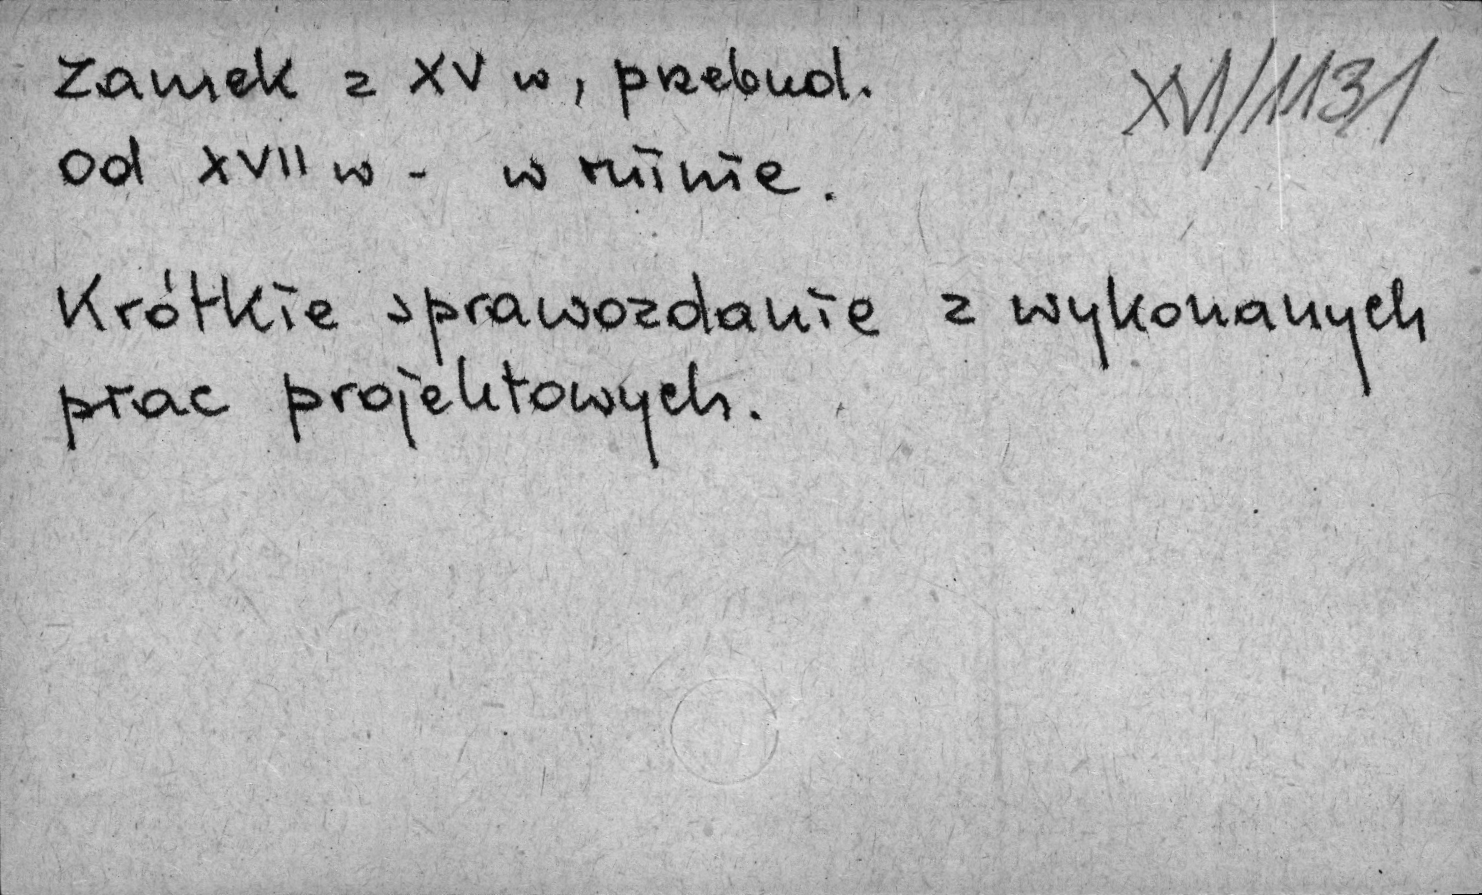 Zamek z XV w, przebud. XVI/1131
od XVII w - w ruinie.
Krótkie sprawozdanie z wykonanych
prac projektowych.